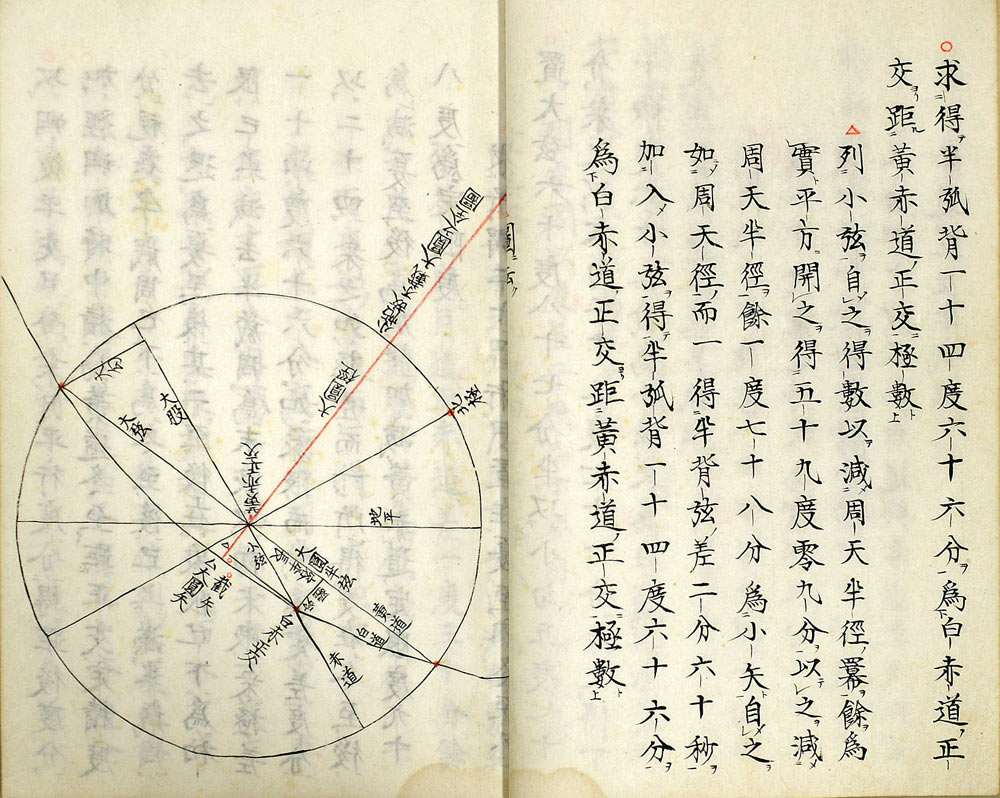 求得半弧背一十四度六十六分為白赤道正
交距黄赤道正交極數
列小弦自之得數以減周天半徑冪餘為
實平方開之得五十九度零九分以之減
周天半徑餘一度七十八分為小矢自之
如周天徑而一得半背弦差二分六十秒
加入小弦得半弧背一十四度六十六分
為白赤道正交距黄赤道正交極數
大圓徑
北極
大勾
大股
大弦
黄赤正交
地平
小弦
大圓半弦
黄道
白道
赤道
白赤正交
截矢
大圓矢